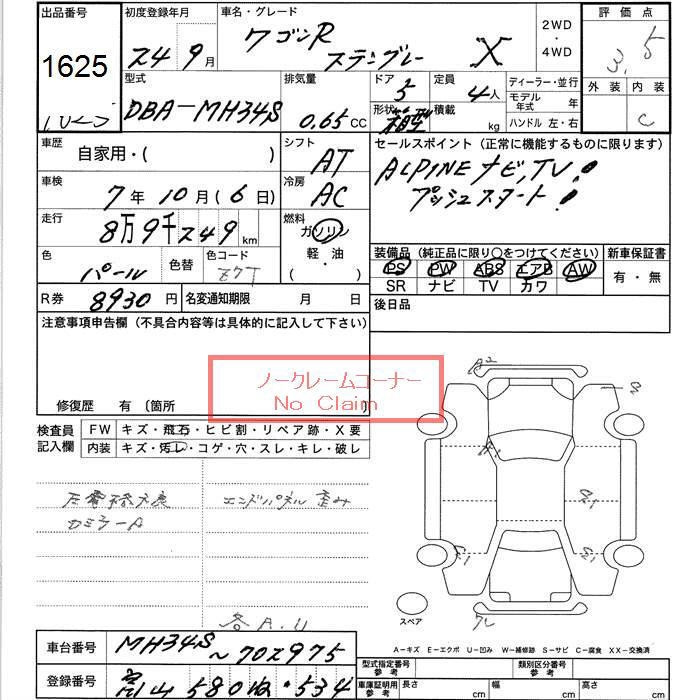 出品番号 初度登録年月 車名・グレード 2WD ・ 4WD 評価点
1625 24 9月 ワゴンR スティングレー X 3.5
型式 排気量 ドア 定員 ディーラー・並行 外装 内装
DBA-MH34S 0.65CC 5 4人 モデル年式 年 C
形状 箱型 積載 kg ハンドル 左・右
車歴 自家用・( ) シフト AT セールスポイント (正常に機能するものに限ります)
車検 7年10月(6日) 冷房 AC ALPINE ナビ,TV!
プッシュスタート!
走行 8万9千249km 燃料 ガソリン 軽・油 ( )
色 パール 色替 色コード Z7T
装備品 (純正品に限り○をつけてください) 新車保証書
PS PW ABS エアB AW 有・無
SR ナビ TV カワ
R券 8930円 名変通知期限 月 日 後日品
注意事項申告欄 (不具合内容等は具体的に記入して下さい)
ノークレームコーナー
No Claim
修復歴 有 〔箇所 〕
検査員記入欄 FW キズ・飛石・ヒビ割・リペア跡・X要
内装 キズ・汚レ・コゲ・穴・スレ・キレ・破レ
エンドパネル 歪み
各A.U
A2
スペア
A-キズ E-エクボ U-凹み W-補修跡 S-サビ C-腐食 XX-交換済
車台番号 MH34S～702975
型式指定番号 参考 類別区分番号 参考
登録番号 富山 580 534
車庫証明用 参考 長さ cm 幅 cm 高さ cm